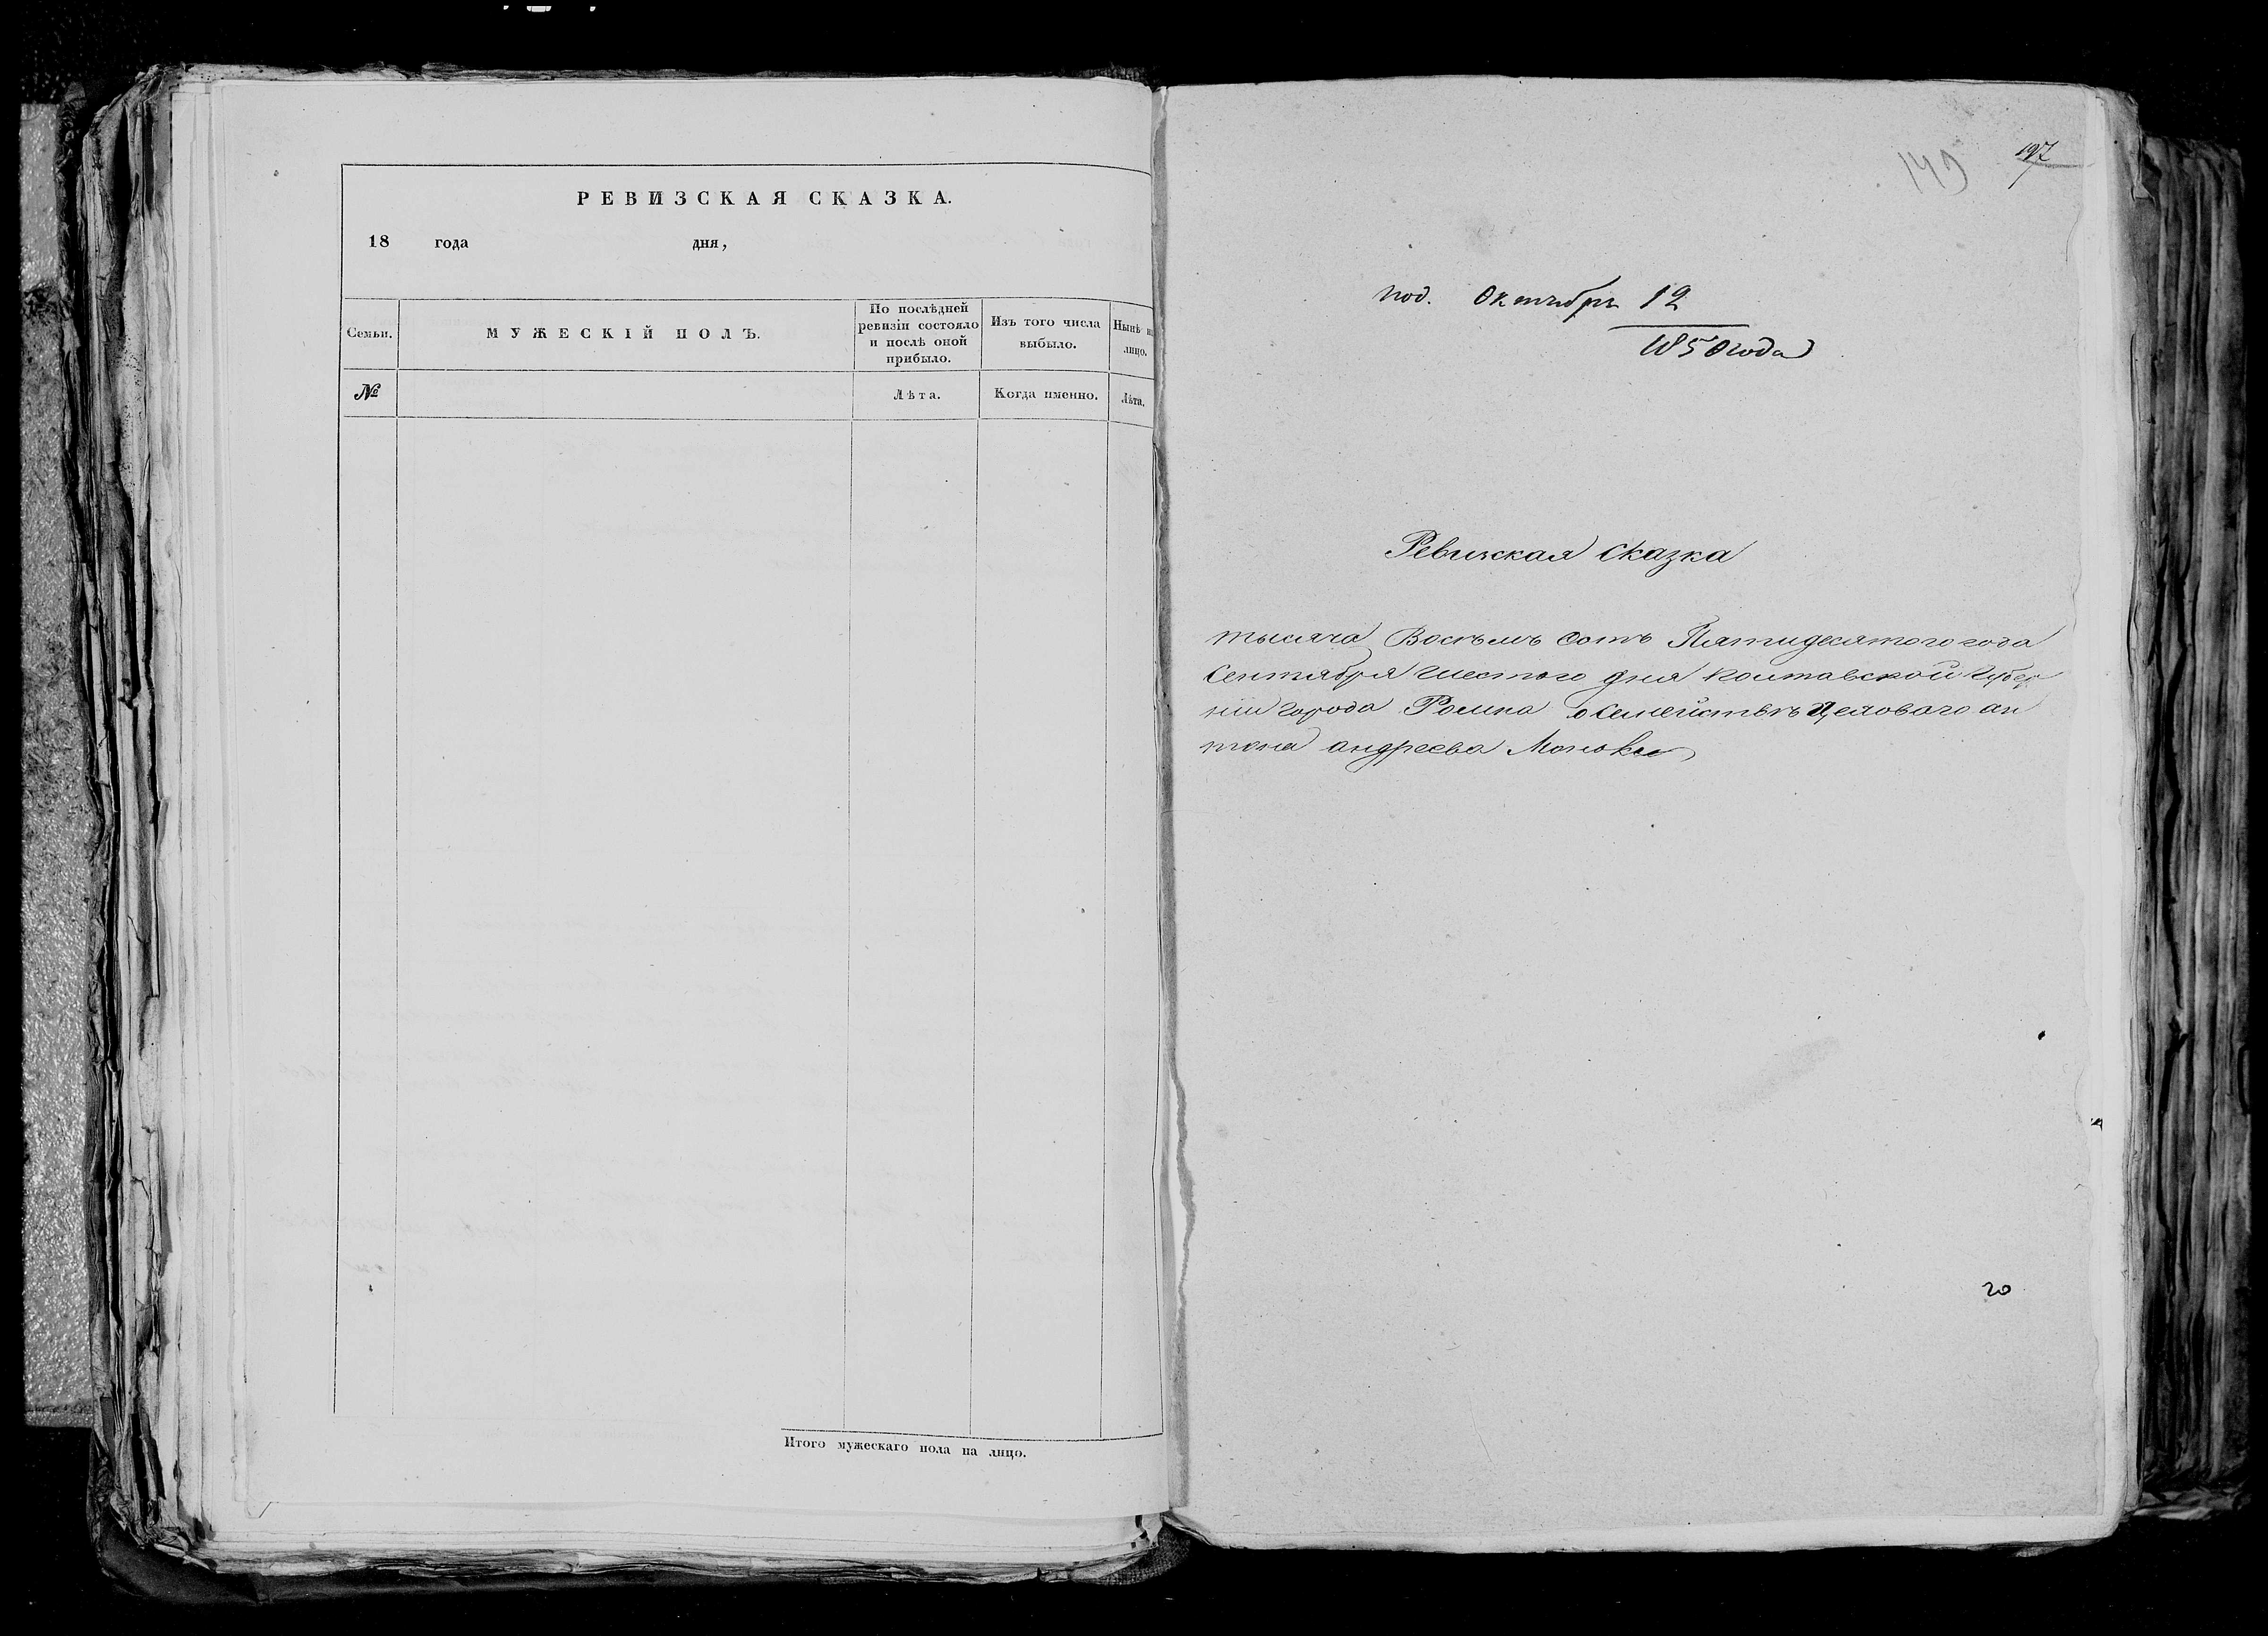 РЕВИЗСКАЯ СКАЗКА.
18 года дня,
Семьи.
МУЖЕСКІЙ ПОЛЪ.
По послѣдней
ревизіи состояло
и послѣ оной
прибыло.
Изъ того числа
выбыло.
Нынѣ на
лицо.
№
Лѣта.
Когда именно.
Лѣта.
Итого мужескаго пола на лицо.
197
под. Октября 12
1850 года
Ревизская Сказка
тысяча Восъмъ Сотъ Пятидесятого года
Сентября шестого дня Полтавской Губер
ніи Города Ромна о Семействѣ Цехового ан
тона андреева
20